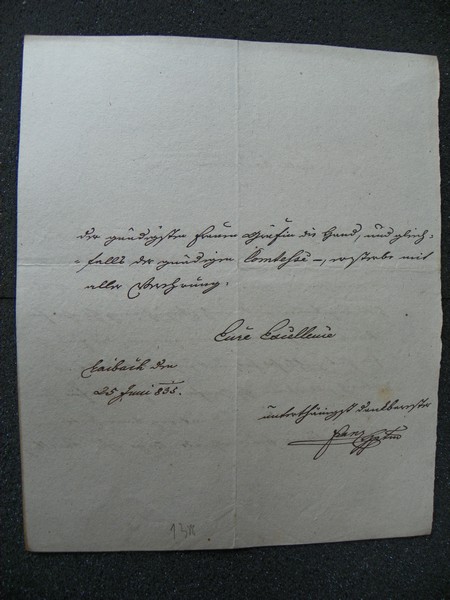 der gnädigsten Frauen Gräfin die Hand, und gleich=
=falls der gnädigen Comtesse –, ersterbe mit
aller Verehrung.
Eure Excellenz
Laibach den
25 Juni 835.
unterthänigst dankbarster
Franz